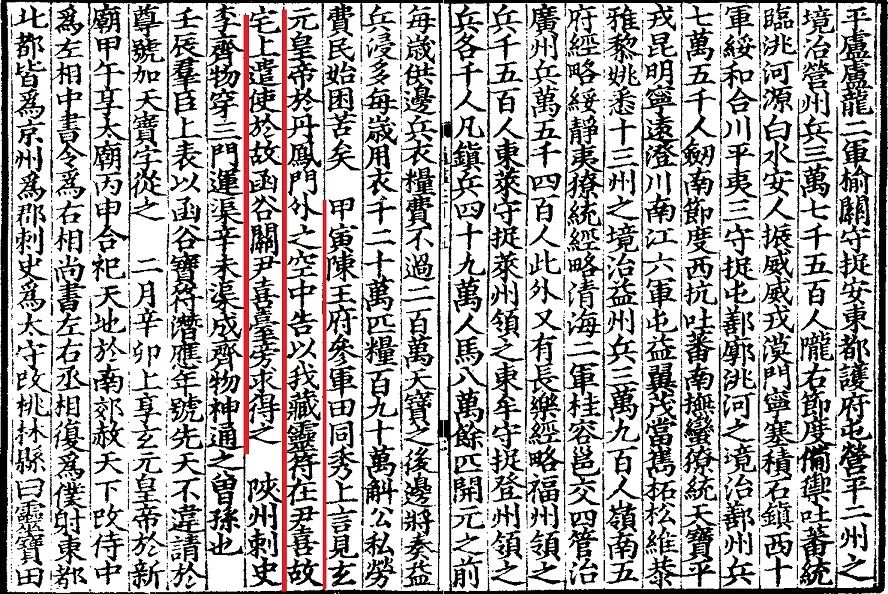 平盧盧龍二軍榆關守捉安東都護府屯營平二州之
境治營州兵三萬七千五百人隴右節度備禦吐蕃統
臨洮河源白水安人振威威戎漠門寧塞積石鎮西十
軍綏和合川平夷三守捉屯鄯廓洮河之境治鄯州兵
七萬五千人劒南節度西抗吐蕃南撫蠻獠統天寶平
戎昆明寧遠澄川南江六軍屯益翼茂當嶲拓松維恭
雅黎姚悉十三州之境治益州兵三萬九百人嶺南五
府經略綏靜夷獠統經略清海二軍桂容邕交四管治
廣州兵萬五千四百人此外又有長樂經略福州領之
兵千五百人東萊守捉萊州領之東牟守捉登州領之
兵各千人凡鎮兵四十九萬人馬八萬餘匹開元之前
每歲供邊兵衣糧費不過二百萬天寶之後邊將奏益
兵浸多每歲用衣千二十萬匹糧百九十萬斛公私勞
費民始困苦矣 甲寅陳王府參軍田同秀上言見玄
元皇帝於丹鳳門外之空中告以我藏靈符在尹喜故
宅上遣使於故函谷關尹喜臺旁求得之 陝州刺史
李齊物穿三門運渠辛未渠成齊物神通之曾孫也
壬辰羣臣上表以函谷寶符潛應年號先天不違請於
尊號加天寶字從之 二月辛卯上享玄元皇帝於新
廟甲午享太廟丙申合祀天地於南郊赦天下改侍中
爲左相中書令爲右相尚書左右丞相復爲僕射東都
北都皆爲京州爲郡刺史爲太守改桃林縣曰靈寶田